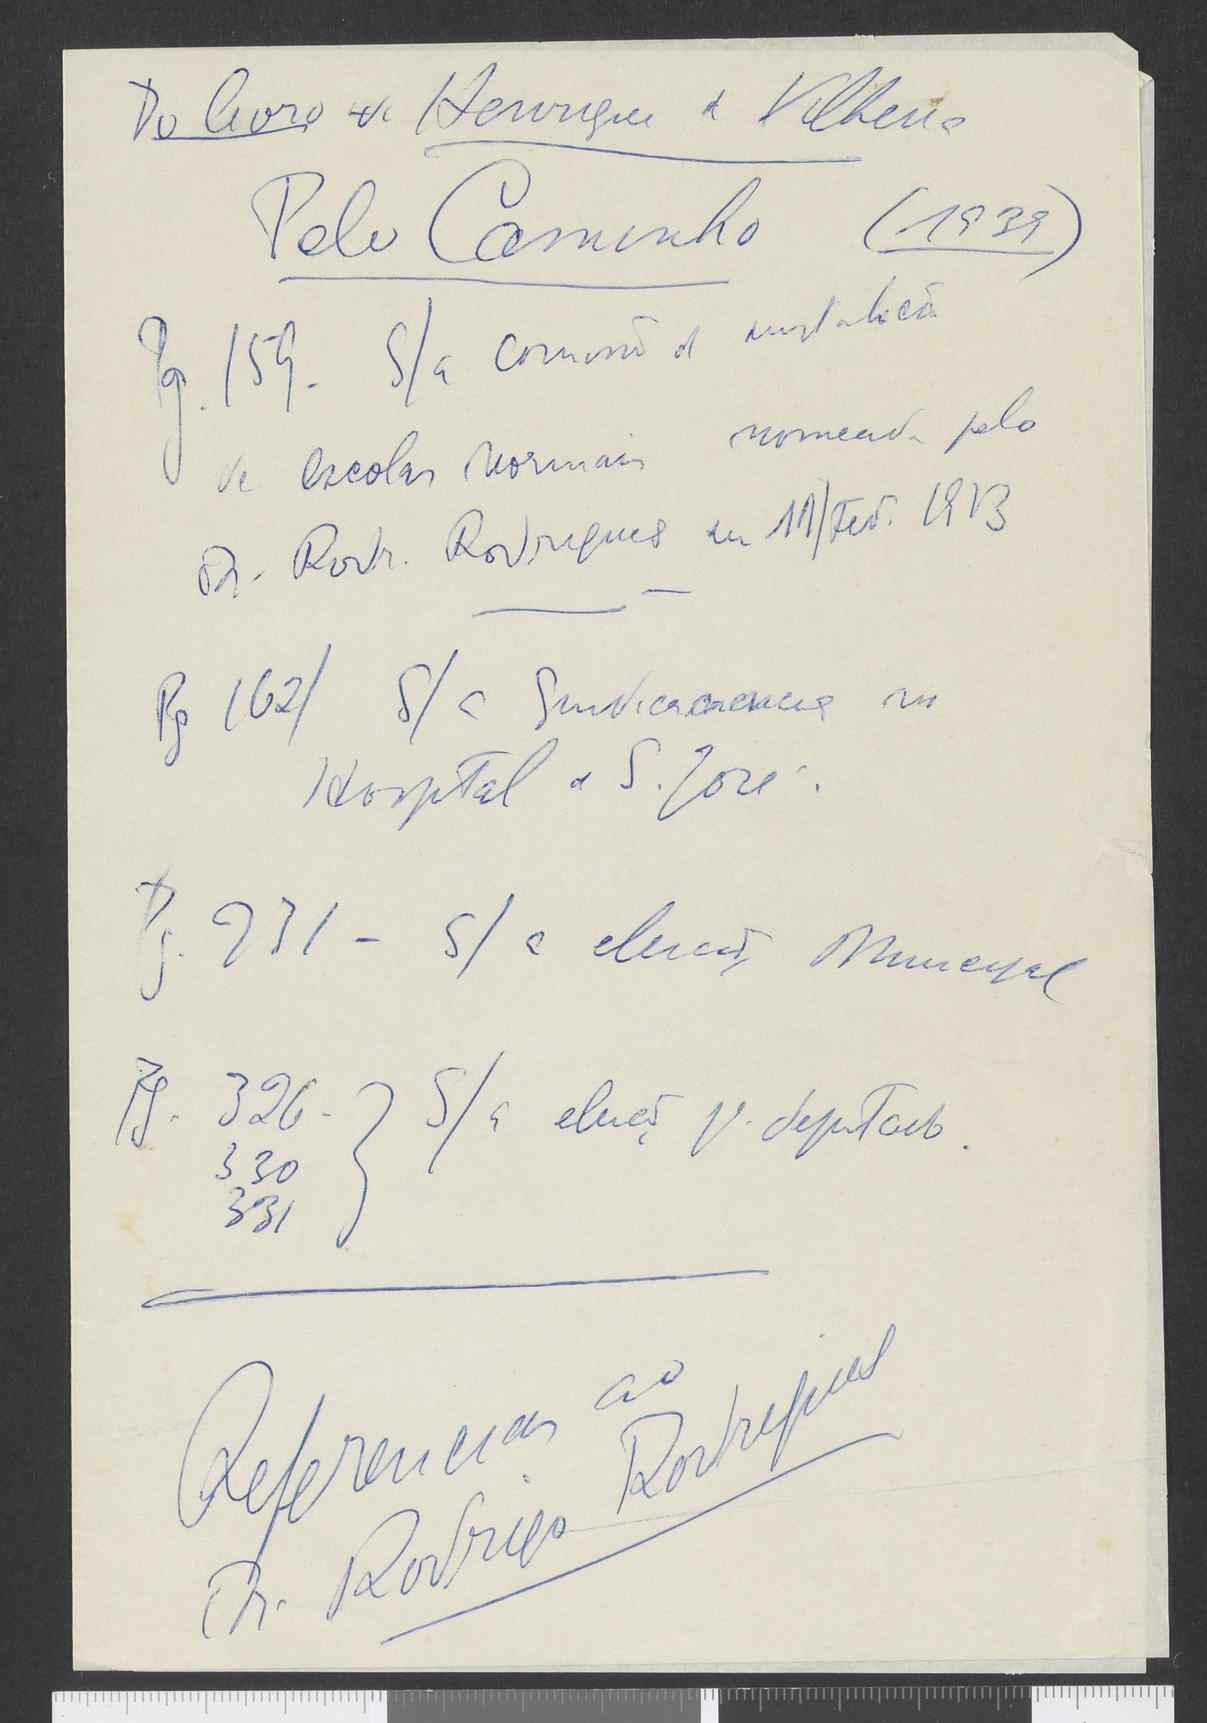 Do livro de Henrique de Vilhena
Pelo Caminho (1939)
Pg. 159. S/a comissã de instalaçã
de escolas normais nomeada pelo
Dr. Rodr. Rodrigues em 11/Fev. 1913
Pg 162/ S/a Sindicancia no
Hospital de S. José.
Pg. 231 - S/a eleiçã Municipal
Pg. 326. } S/a eleiçã p. deputado.
330
331
Referencias ao
Dr. Rodrigo Rodrigues